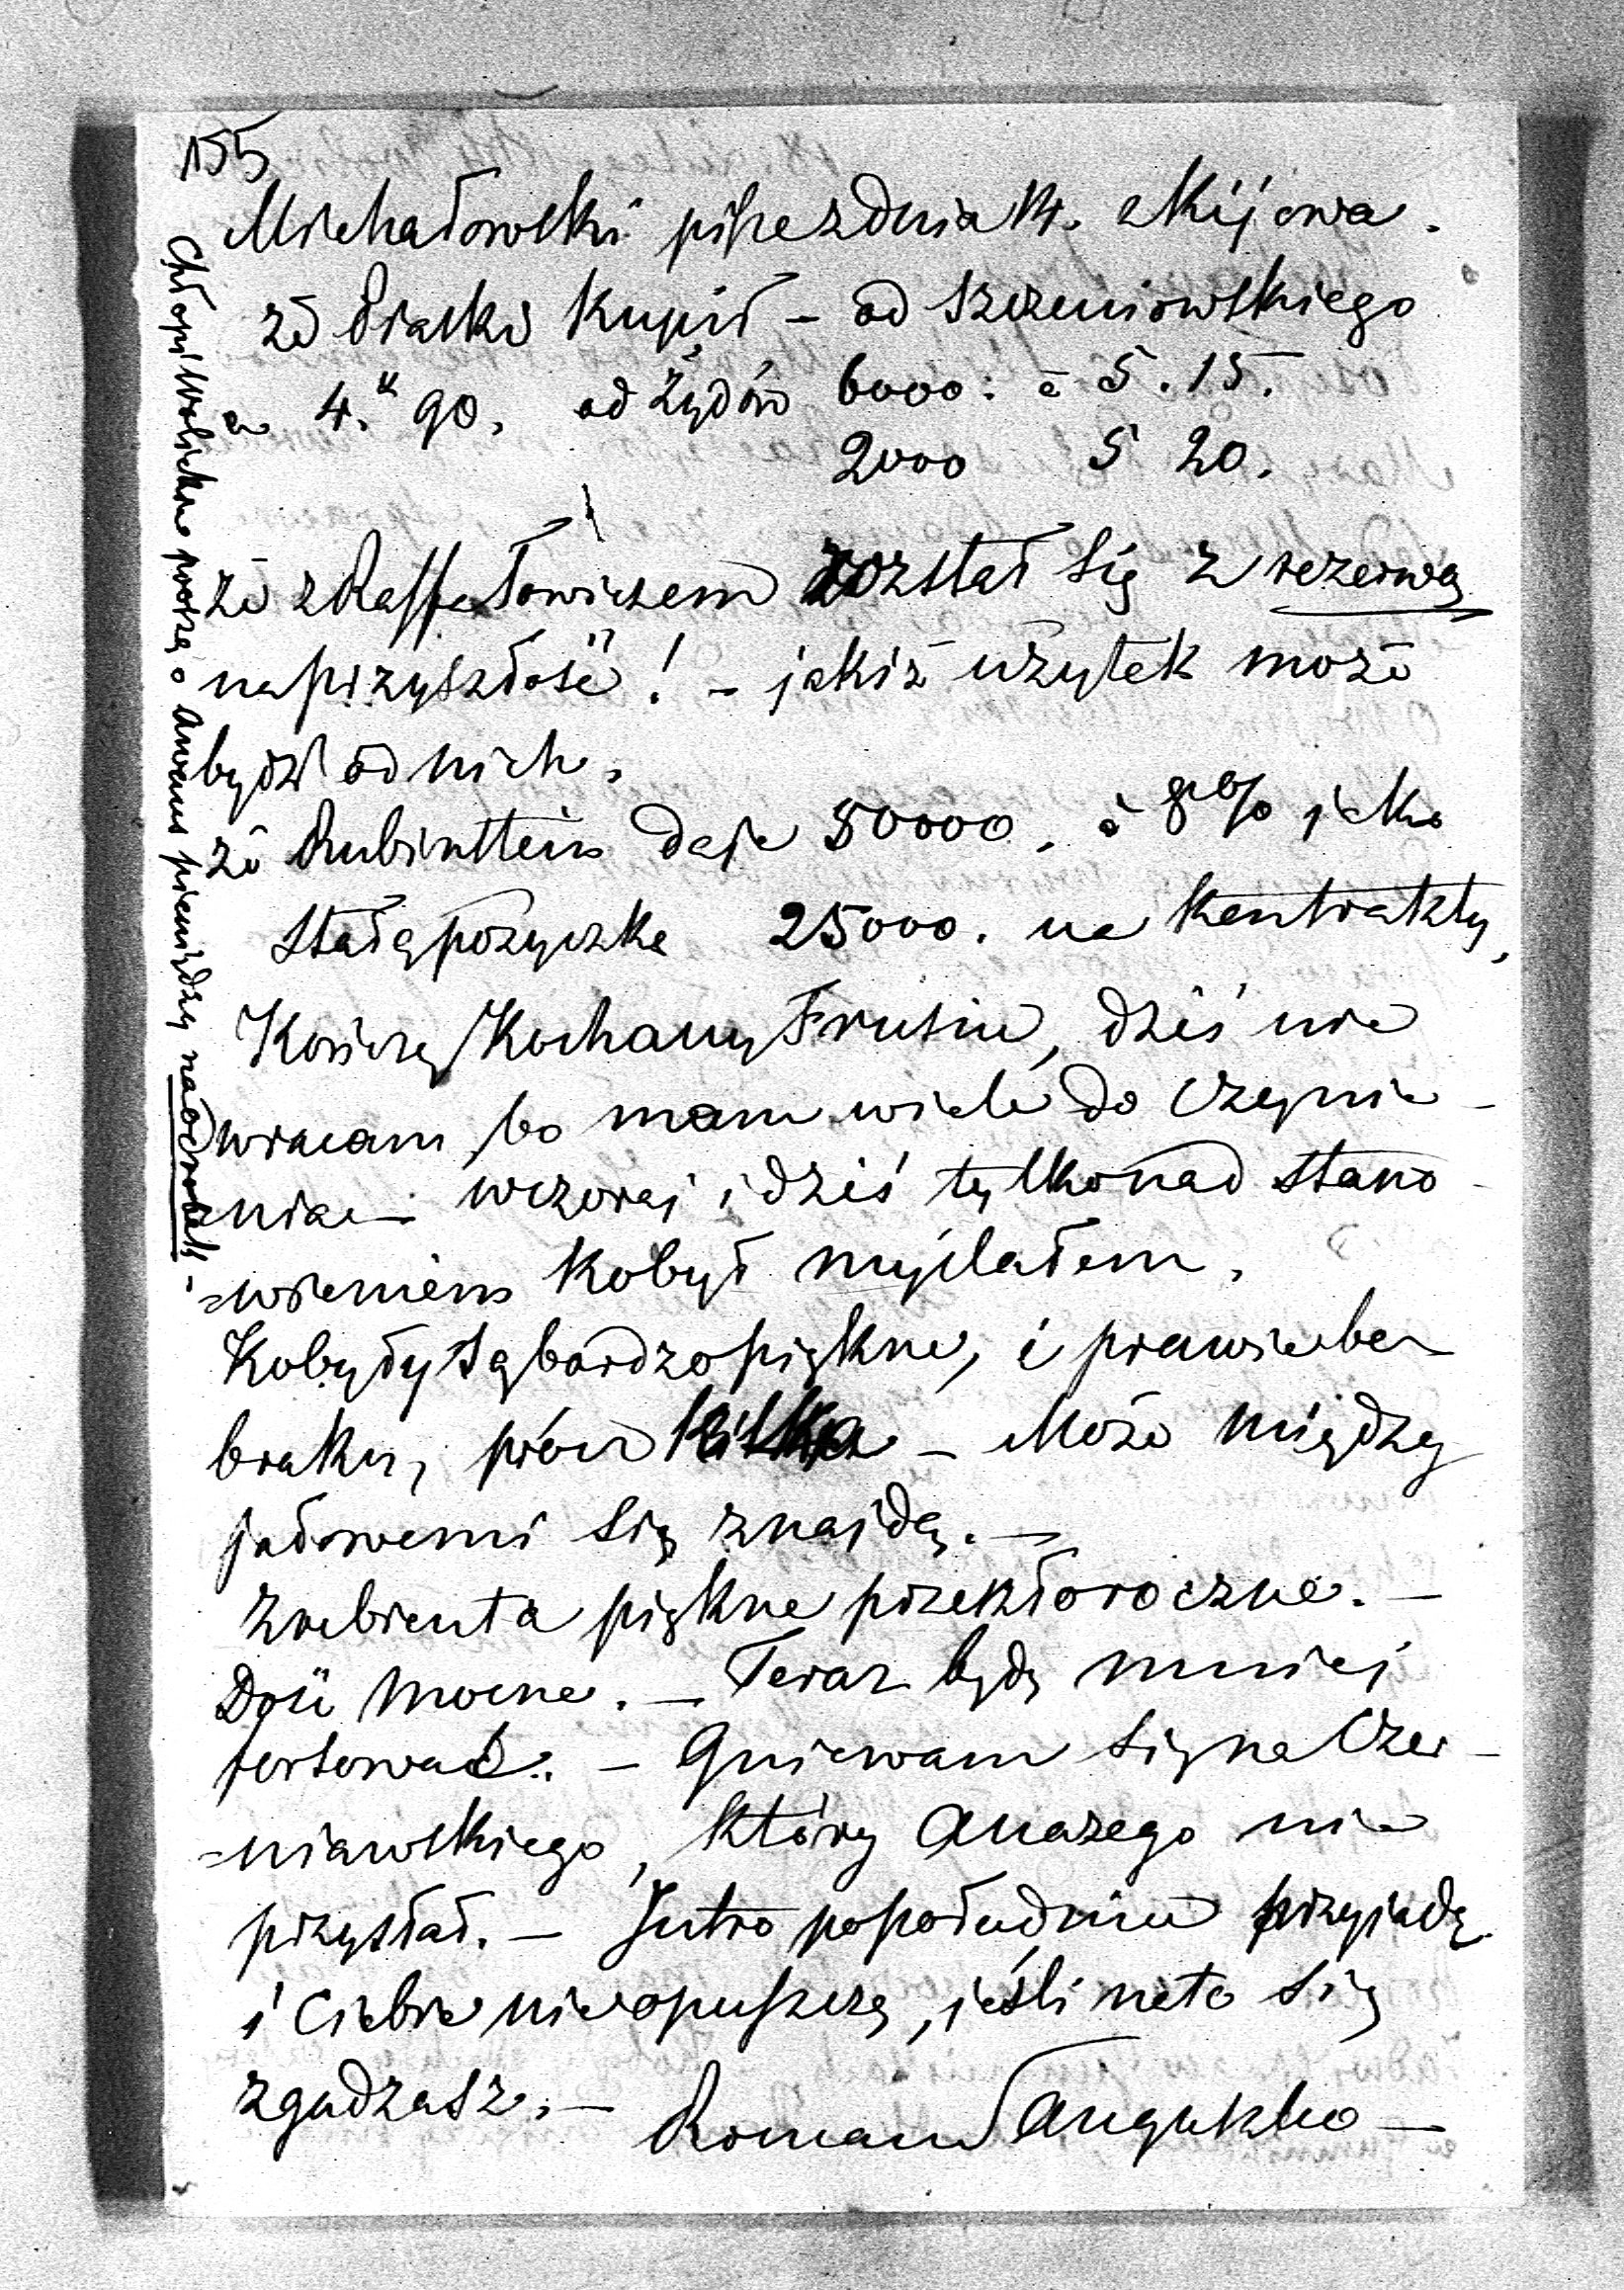 155
Michałowski pisze z dnia 14. z Kijowa.
że Piaski kupił – od Szczeniowskiego
a 4.k 90. od Żydów 6000: a 5.15.
2000 5 20.
że z Raffałowiczem rozstał się z rezerwą
na przyszłość! – jakiż użytek może
bydź od nich.
że Rubinstein daje 50000. à 8% jako
stałą pożyczkę 25000. na kontrakty,
Kończę Kochany Frusiu, dziś nie
wracam, bo mam wiele do czynie-
nia – wczoraj i dziś tylko nad stano-
=wieniem kobył myślałem.
Kobyły są bardzo piękne, i prawie bez
braku, prócz kilka – Może między
jałowemi się znajdą. –
Zrebienta piękne przeszłoroczne. –
Dość mocne. – Teraz będę mniej
forsować. – Gniewam się na Czer-
=niawskiego, który Anazego nie
przysłał. – Jutro popołudniu przyjadę
i Ciebie nie opuszczę, jeśli na to się
zgadzasz. –
Roman Sanguszko –
Chłopi Woliccy proszą o Awans pieniędzy na odrobek –